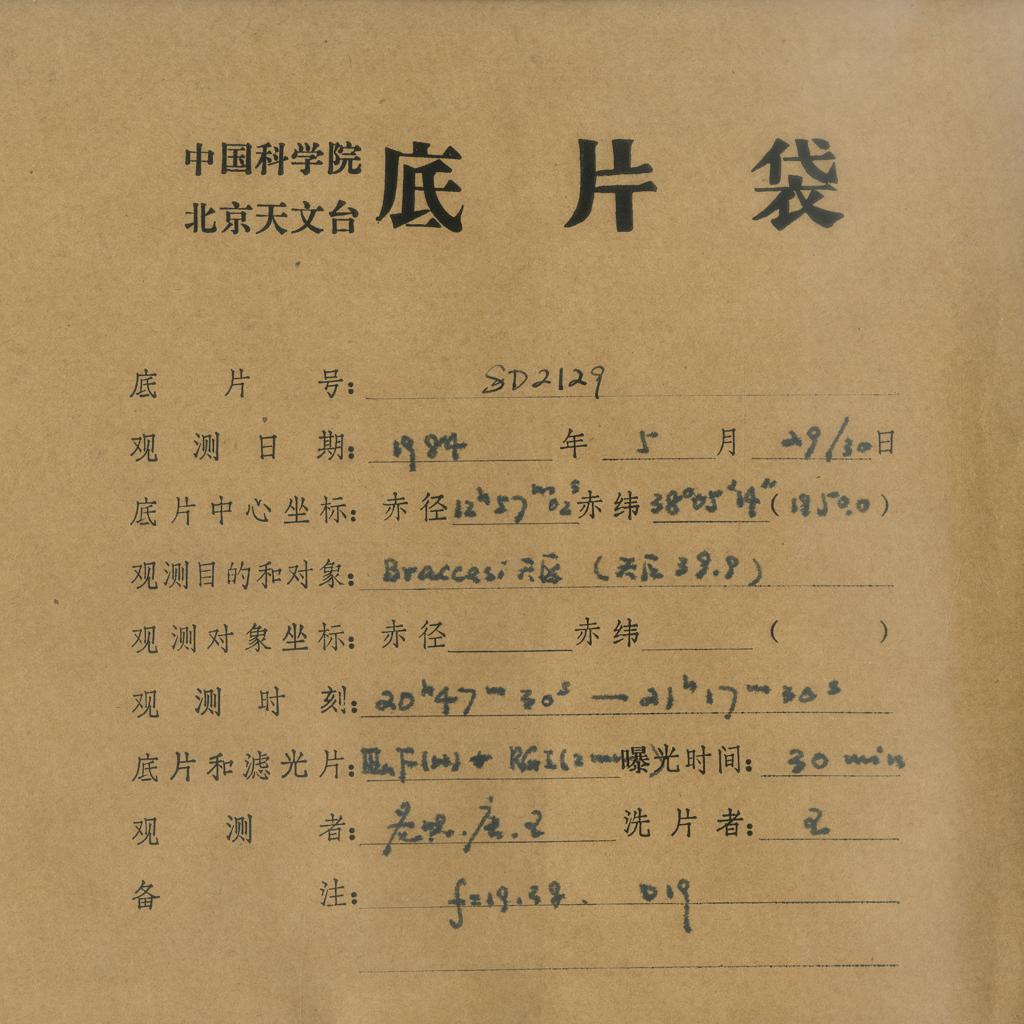 中国科学院
北京天文台
底片袋
底片号: SD2129
观测日期: 1984年5月29/30日
底片中心坐标: 赤径12ʰ57ᵐ02ˢ赤纬38°05′14″(1950.0)
观测目的和对象: Braccesi天区 (天区 38.8)
观测对象坐标: 赤径 赤纬 ( )
观测时刻: 20ʰ47ᵐ30ˢ — 21ʰ17ᵐ30ˢ
底片和滤光片: + 曝光时间: 30 min
观测者: 洗片者: 王
备注: f=19.38. 019